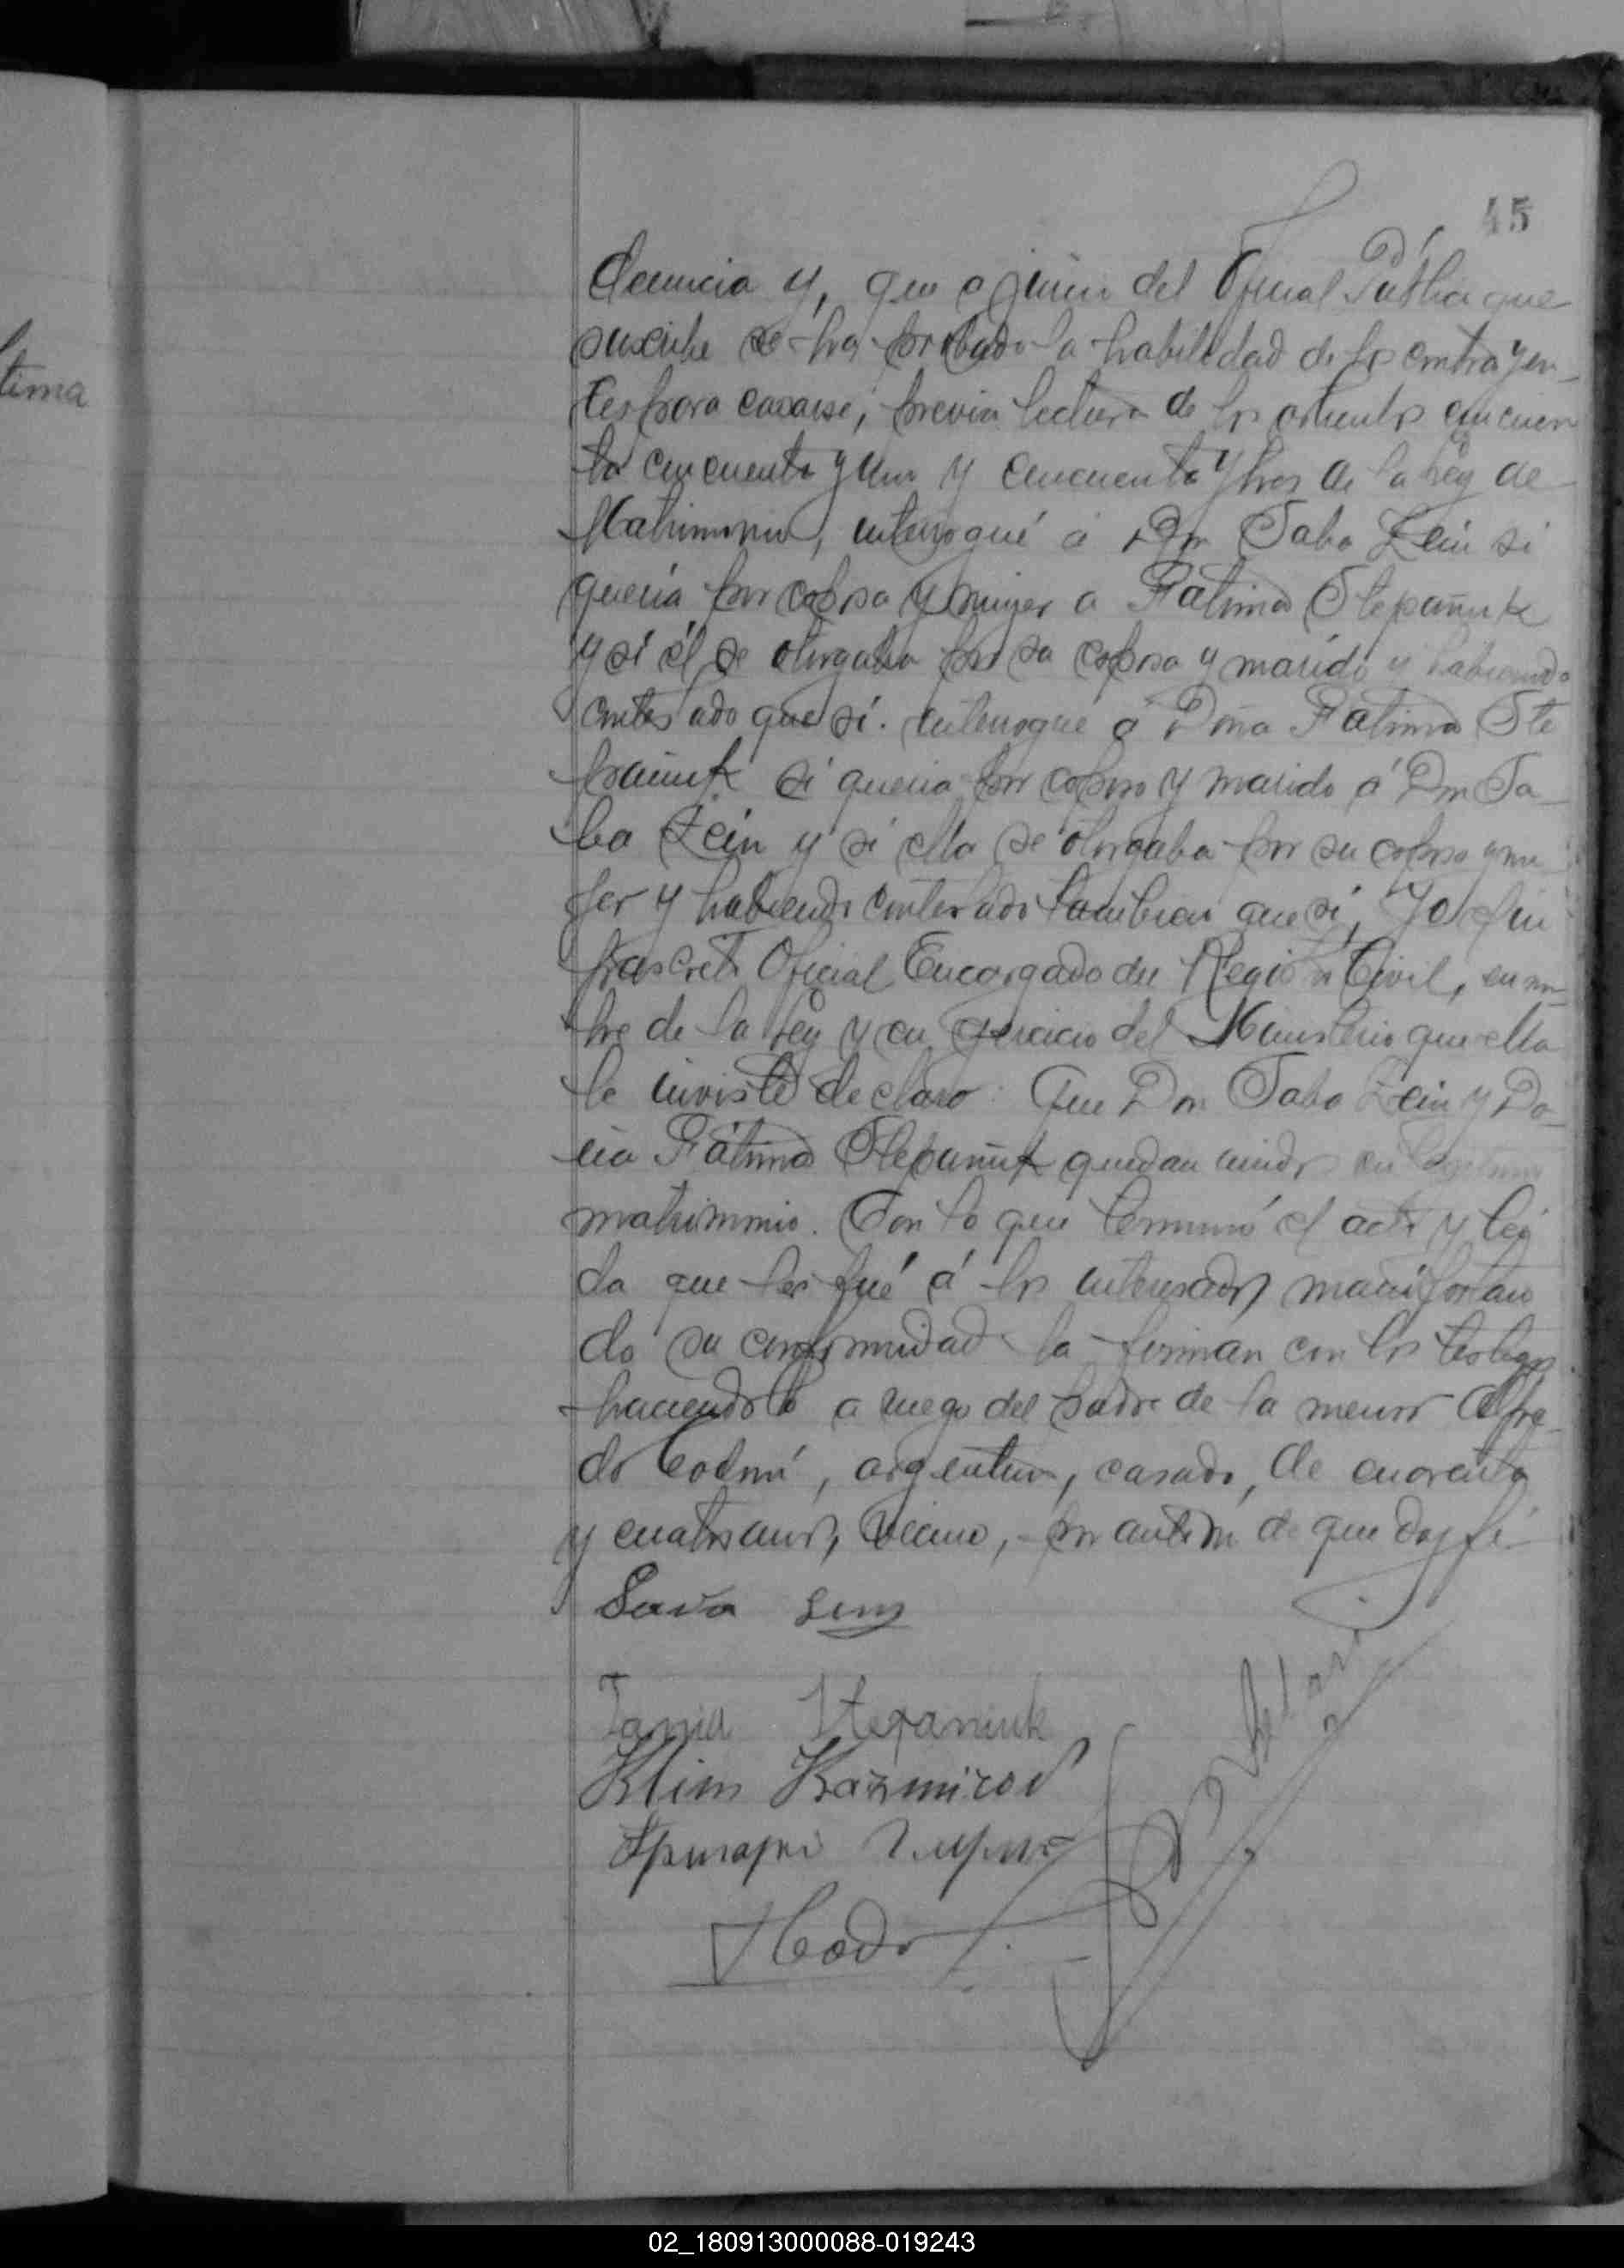 45
tima
dencia y, que a juicio del Oficial Público que
suscribe se ha probado la habilidad de los contrayen_
tes para casarse, previa lectura de los artículos cincuen
ta cincuenta y uno y cincuenta y tres de la Ley de
Matrimonio, interrogué á Don Saba Zein si
quería por esposa y mujer a Fátima Stepañuk
y si él se otorgaba por su esposo y marido y habiendo
contestado que si. interrogué á Doña Fatima Ste
pañuk si quería por esposo y marido á Don Sa_
ba Zein y si ella se otorgaba por su esposa y mu
jer y habiendo contestado tambien que sí, Yo el in
frascrito Oficial Encargado del Registro Civil, en nom_
bre de la Ley y en ejercicio del Ministerio que ella
le inviste declaro: Que Don Saba Zein y Do_
ña Fátima Stepañuk quedan unidos en legítimo
matrimonio. Con lo que terminó el acta y leí
da que les fué á los interesados manifestan
do su conformidad la firman con los testigos
haciendolo a ruego del padre de la menor Alfre_
do Codmí, argentino, casado, de cuarenta
y cuatro años, vecino, por ante mi de que doy fé
Sava
Tania Stepaniuk
Klim Kazmirov